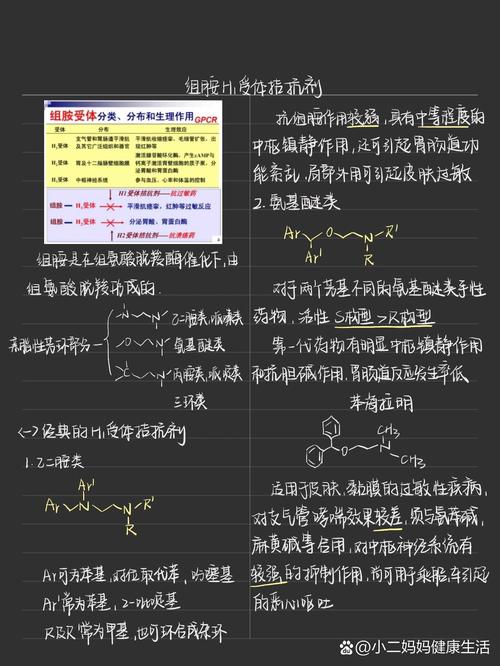 组胺H₁受体拮抗剂
组胺受体分类、分布和生理作用 GPCR
受体 分布 生理效应
H₁受体 支气管和胃肠道平滑肌及其它广泛组织和器官 平滑肌收缩痉挛，毛细管扩张，出现红肿等
H₂受体 胃及十二指肠壁细胞膜 激活腺苷酸环化酶，产生cAMP与钙离子激活胃壁细胞的质子泵，分泌胃酸和胃蛋白酶
H₃受体 中枢神经系统 参与血压、心率和体温的控制
H1受体拮抗剂——抗过敏药
组胺 H₁受体 平滑肌痉挛，红肿等过敏反应
组胺 H₂受体 分泌胃酸、胃蛋白酶
H2受体拮抗剂——抗溃疡药
组胺是在组氨酸脱羧酶催化下，由
组氨酸脱羧形成的.
亲脂性芳环部分
N N 乙二胺类，哌嗪类
O N 氨基醚类
C N 丙胺类，哌啶类
三环类
<一>经典的H₁受体拮抗剂
1.乙二胺类
Ar' Ar N N R' R
Ar可为苯基，对位取代苯，噻嗯基
Ar'常为苯基，2-吡啶基
R及R'常为甲基，也可环合成杂环
抗组胺作用较强，具有中等程度的
中枢镇静作用，还可引起胃肠道功
能紊乱，局部外用可引起皮肤过敏
2.氨基醚类
Ar O N R' Ar' R
对于两个芳基不同的氨基醚类手性
药物，活性S构型>R构型
第一代药物有明显中枢镇静作用
和抗胆碱作用，胃肠道反应发生率低
苯海拉明
O N CH₃ CH₃
适用于皮肤，黏膜的过敏性疾病，
对支气管哮喘效果较差，须与氨茶碱，
麻黄碱等合用，对中枢神经系统有
较强的抑制作用，尚可用于乘船，车引起
的恶心呕吐
@小二妈妈健康生活